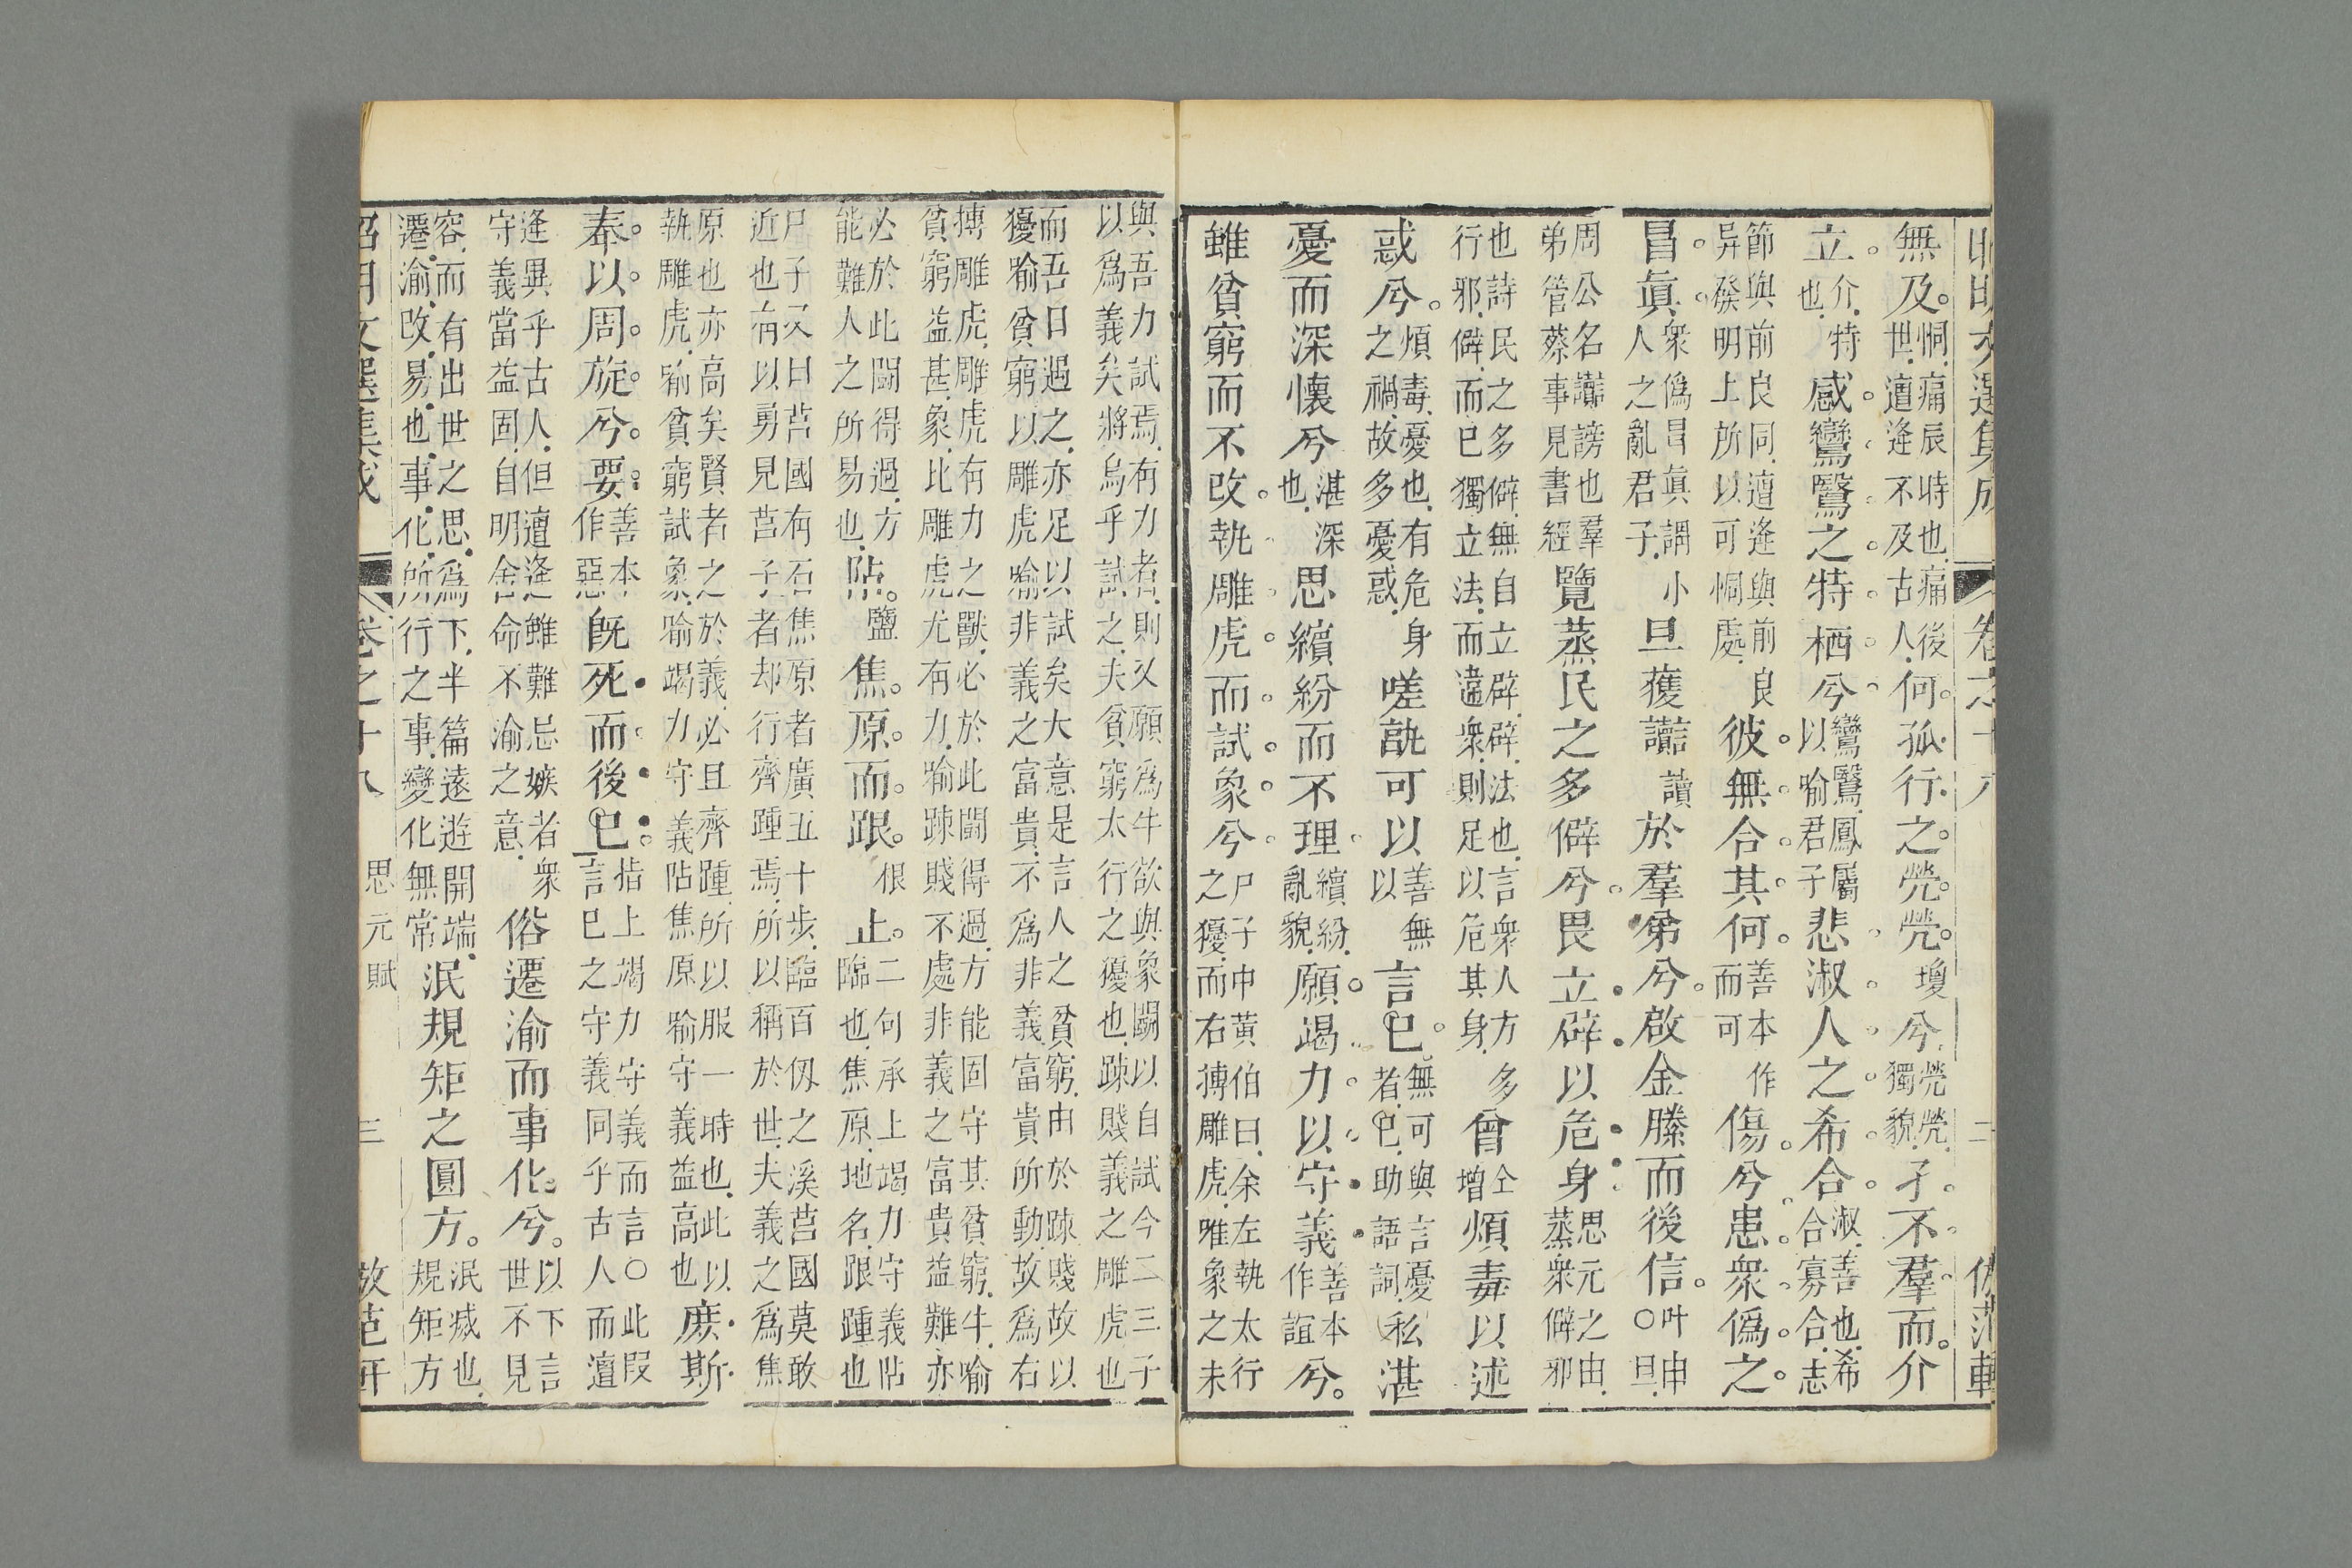 昭明文選集成 卷之十八 二 仿范軒
無及恫痛辰時也痛後世邅逢不及古人何孤行之煢煢瓊兮煢煢獨貌孑不羣而介
立介特也感鸞鷖之特栖兮鸞鷖鳳屬以喻君子悲淑人之希合淑善也希合寡合志
節與前良同邅逢與前良异發明上所以可恫處彼無合其何善本作而可傷兮患衆僞之
冒眞衆僞冒眞謂小人之亂君子旦獲讟讀於羣弟兮啟金縢而後信叶申○旦
周公名讟謗也羣弟管蔡事見書經覽蒸民之多僻兮畏立辟以危身思元之由蒸衆僻邪
也詩民之多僻無自立辟辟法也言衆人方多行邪僻而已獨立法而違衆則足以危其身曾仝增煩毒以述
惑兮煩毒憂也有危身之禍故多憂惑嗟孰可以善無以言已無可與言憂私者已助語詞湛
憂而深懷兮湛深也思繽紛而不理繽紛亂貌願竭力以守義善本作誼兮
雖貧窮而不改執雕虎而試象兮尸子中黄伯曰余左執太行之獶而右搏雕虎唯象之未
與吾力試焉有力者則又願爲牛欲與象鬬以自試今二三子以爲義矣將烏乎試之夫貧窮太行之獶也疎賤義之雕虎也
而吾日遇之亦足以試矣大意是言人之貧窮由於疎賤故以獶喻貧窮以雕虎喻非義之富貴不爲非義富貴所動故爲右
搏雕虎雕虎有力之獸必於此鬬得過方能固守其貧窮牛喻貧窮益甚象比雕虎尤有力喻疎賤不處非義之富貴益難亦
必於此鬬得過方能難人之所易也阽鹽焦原而跟根止二句承上竭力守義阽臨也焦原地名跟踵也
尸子又曰莒國有石焦原者廣五十步臨百仭之溪莒國莫敢近也有以勇見莒子者却行齊踵焉所以稱於世夫義之爲焦
原也亦高矣賢者之於義必且齊踵所以服一時也此以執雕虎喻貧窮試象喻竭力守義阽焦原喻守義益高也庶斯
奉以周旋兮要善本作惡既死而後已指上竭力守義而言○此叚言已之守義同乎古人而邅
逢異乎古人但邅逢雖難忌嫉者衆守義當益固自明舍命不渝之意俗遷渝而事化兮以下言世不見
容而有出世之思爲下半篇遠遊開端遷渝改易也事化所行之事變化無常泯規矩之圓方泯滅也規矩方
昭明文選集成 卷之十八 思元賦 三 放范軒